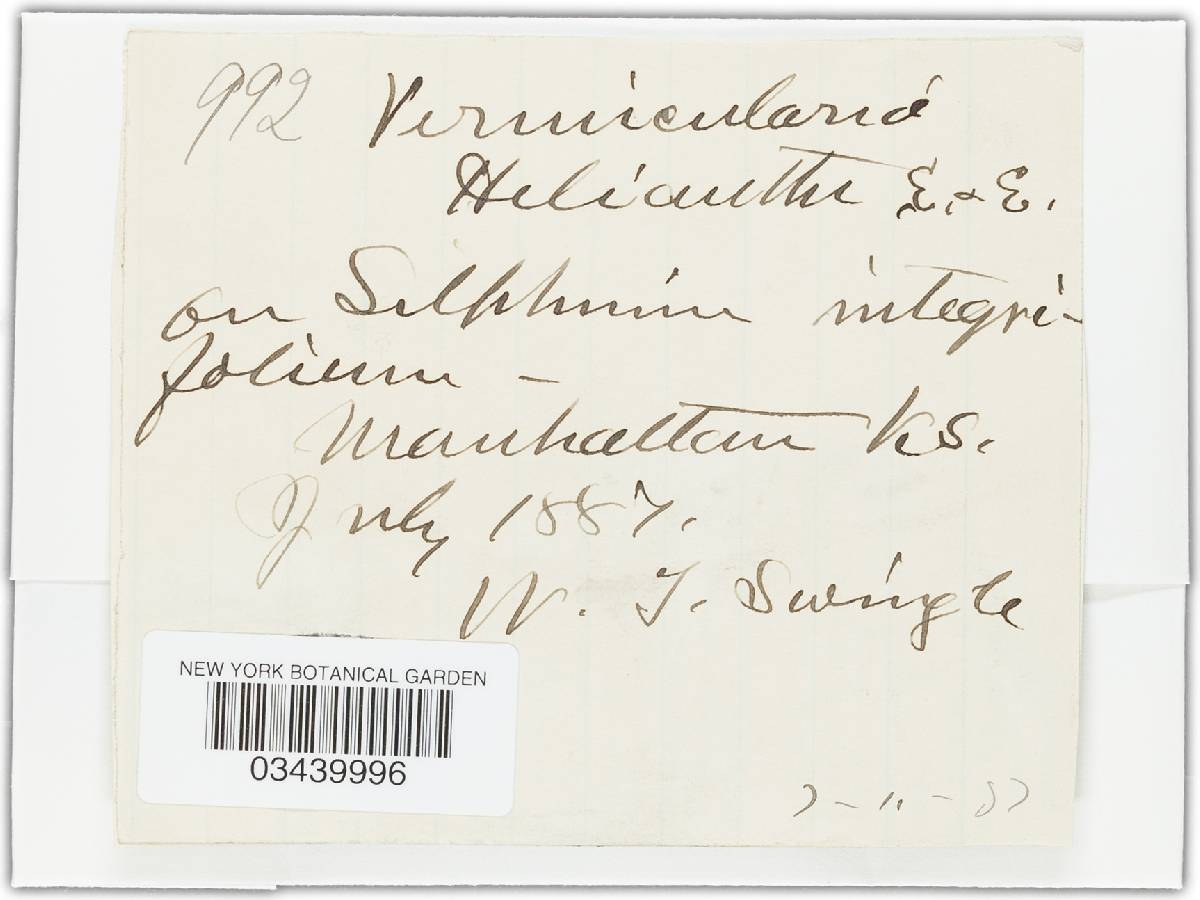 992 Vermicularia
Helianthi E. & E.
on Silphium integri-
folium -
Manhattan Ks.
July 1887.
W. T. Swingle
NEW YORK BOTANICAL GARDEN
03439996
7-11-87